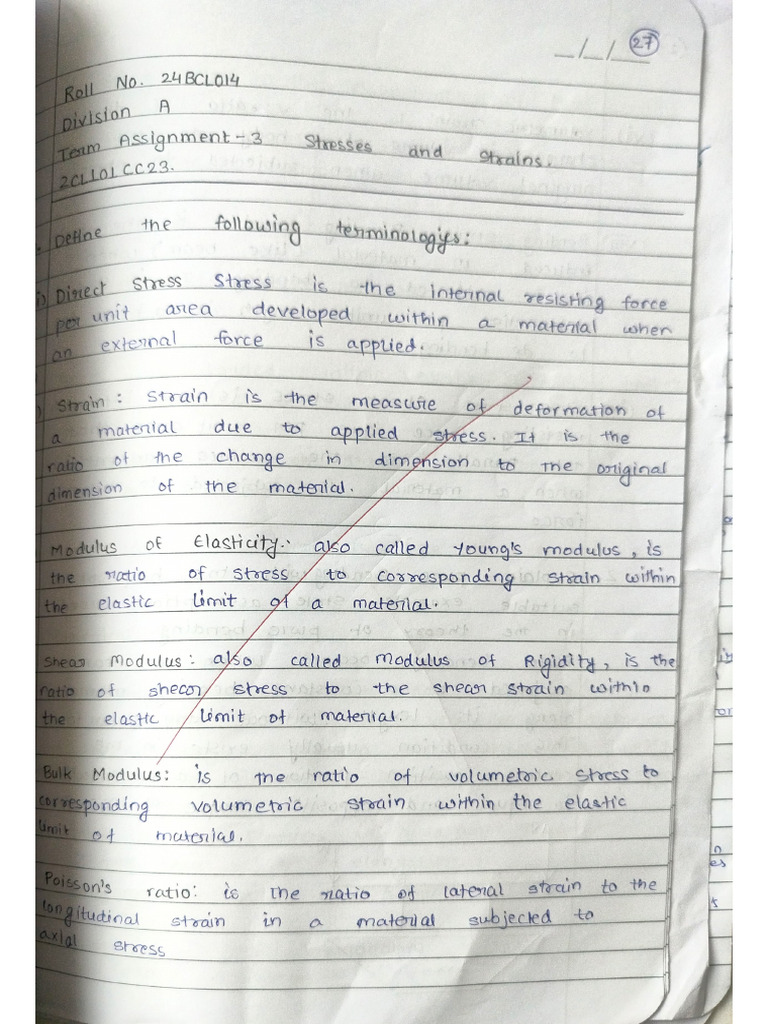 27
Roll No. 24BCL014
Division A
Term Assignment - 3 Stresses and Strains.
2CL101CC23.
Define the following terminologys:
i) Direct Stress Stress is the internal resisting force
per unit area developed within a material when
an external force is applied.
) Strain: Strain is the measure of deformation of
a material due to applied stress. It is the
ratio of the change in dimension to the original
dimension of the material.
Modulus of Elasticity: also called Young's modulus, is
the ratio of stress to corresponding strain within
the elastic limit of a material.
Shear Modulus: also called modulus of Rigidity, is the
ratio of shear stress to the shear strain within
the elastic limit of material.
Bulk Modulus: is the ratio of volumetric stress to
corresponding volumetric strain within the elastic
limit of material.
Poisson's ratio: is the ratio of lateral strain to the
longitudinal strain in a material subjected to
axial stress